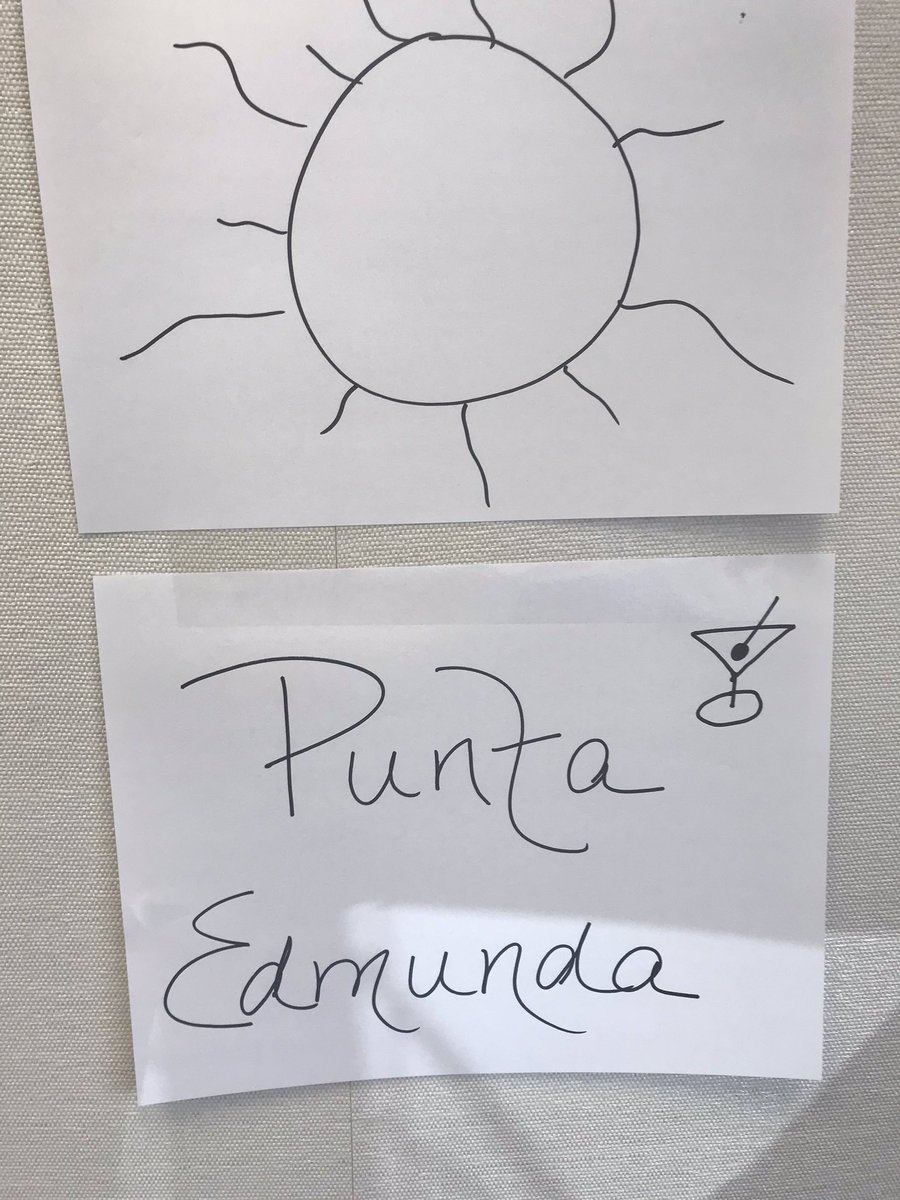 Punta
Edmunda